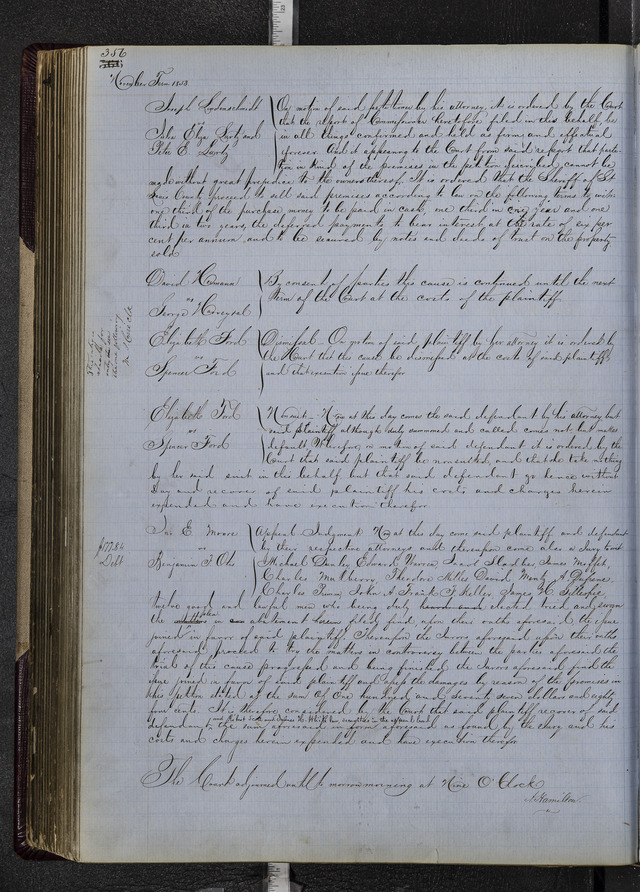 356
November Term 1853
Joseph
On motion of said petitioner by his attorney, it is ordered by the Court
that the report of Commissioners heretofore filed in this behalf, be
Peter E.
in all things confirmed and held as firm and effectual
forever. And it appearing to the Court from said report that parti-
tion in kind of the premises in the petition specified cannot be
made without great prejudice to the owners thereof. It is ordered that the Sheriff of St
Louis County proceed to sell said premises according to law on the following terms to wit:
one third of the purchase money to be paid in cash, one third in one year and one
third in two years, the deferred payments to bear interest at the rate of six per
cent per annum, and to be secured by notes and deeds of trust on the property
sold
David
vs
George
By consent of parties this cause is continued until the next
Term of the Court at the costs of the plaintiff
Elizabeth Ford
vs
Spencer Ford
Dismissal. On motion of said plaintiff by her attorney it is ordered by
the Court that the cause be dismissed at the costs of said plaintiff
and that execution issue therefor
Elizabeth Ford
vs
Spencer Ford
Nonsuit. Now at this day comes the said defendant by his attorney but
said plaintiff although duly summoned and called comes not but makes
default Wherefore, on motion of said defendant it is ordered by the
Court that said plaintiff be nonsuited, and that she take nothing
by her said suit in this behalf but that said defendant go hence without
day and recover of said plaintiff his costs and charges herein
expended and have execution therefor
$177.84
Debt
Jno E. Moore
vs
Benjamin F.
Appeal Judgment Now at this day come said plaintiff and defendant
by their respective attorneys and thereupon come also a Jury to wit
Michael Edward James Moffet,
Charles Theodore Miller David
Charles John A James H. Gillespie
twelve good and lawful men who being duly elected tried and sworn
the in filed find, upon their oaths aforesaid the issue
joined in favor of said plaintiff. Thereupon the Jurors aforesaid upon their oaths
aforesaid, proceed to try the matters in controversy between the parties aforesaid the
trial of this cause progressed and being finished, the Jurors aforesaid find the
issue joined in favor of said plaintiff and assess the damages by reason of the premises in
his petition stated at the sum of One hundred and seventy seven dollars and eighty
four cents. It is therefore considered by the Court that said plaintiff recover of said
defendant and securities in the appeal bond
the sum aforesaid in form aforesaid as found by the Jury and his
costs and charges herein expended and have execution therefor
The Court adjourned until to morrow morning at Nine O'Clock
A Hamilton